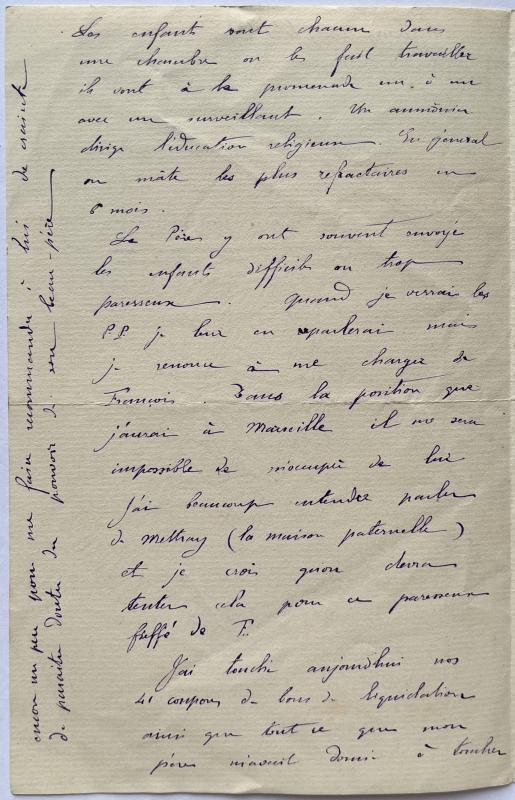 Les enfants sont chacun dans
une chambre on les fait travailler
ils vont à la promenade un à un
avec un surveillant. Un aumônier
dirige l'education religieuse. En général
on mâte les plus refractaires en
6 mois.
Les Pères y ont souvent envoyé
les enfants difficiles ou trop
paresseux. Quand je verrai les
P.P. je leur en reparlerai mais
je renonce à me charger de
François. Dans la position que
j'aurai à Marseille il me sera
impossible de m'occuper de lui
J'ai beaucoup entendu parler
de Mettray (la maison paternelle)
et je crois qu'on devra
tenter cela pour ce paresseux
fieffé de F.
J'ai touché aujourd'hui nos
41 coupons de bons de liquidation
ainsi que tout ce que mon
père m'avait donné à toucher
encore un peu pour me faire recommander à lui de crainte
de paraitre douter du pouvoir de son beau-père